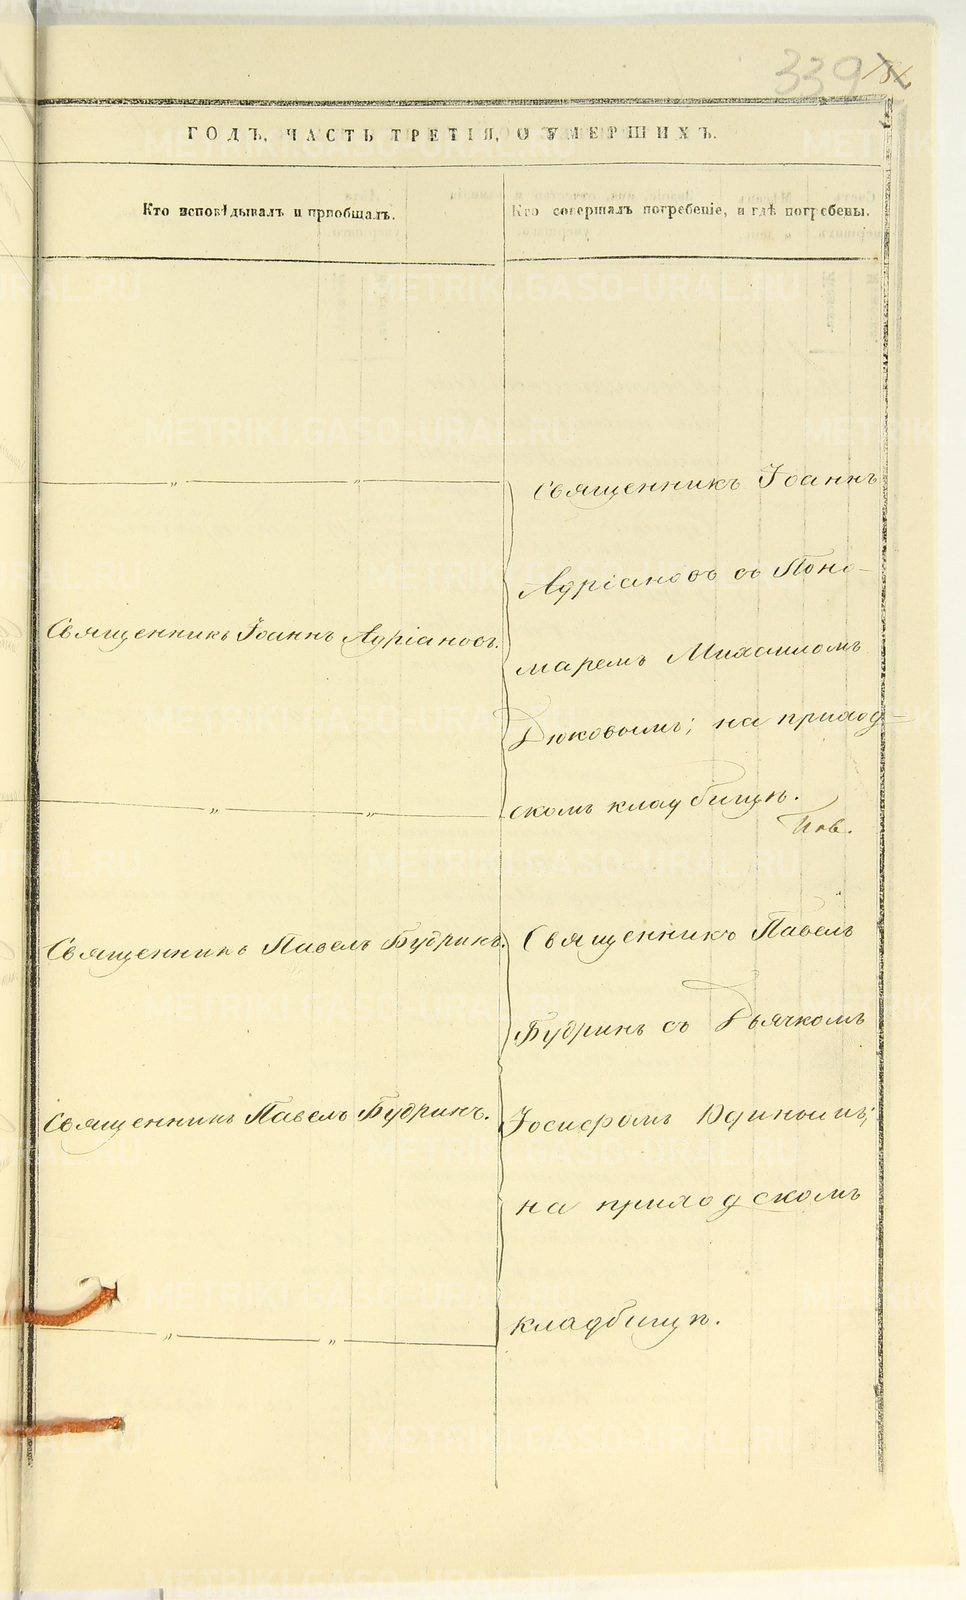 339
ГОДЪ, ЧАСТЬ ТРЕТІЯ, О УМЕРШИХЪ.
Кто исповѣдывалъ и пріобщалъ.
Кто совершалъ погребеніе, и гдѣ погребены.
Священникъ Іоаннъ Адріановъ.
Священникъ Павелъ Будринъ.
Священникъ Павелъ Будринъ.
Священникъ Іоаннъ
Адріановъ съ Поно-
маремъ Михаиломъ
Дюковымъ; на приход-
скомъ кладбищѣ.
Священникъ Павелъ
Будринъ съ Дьячкомъ
Іосифомъ Юдинымъ;
на приходскомъ
кладбищѣ.
METRIKI.GASO-URAL.RU